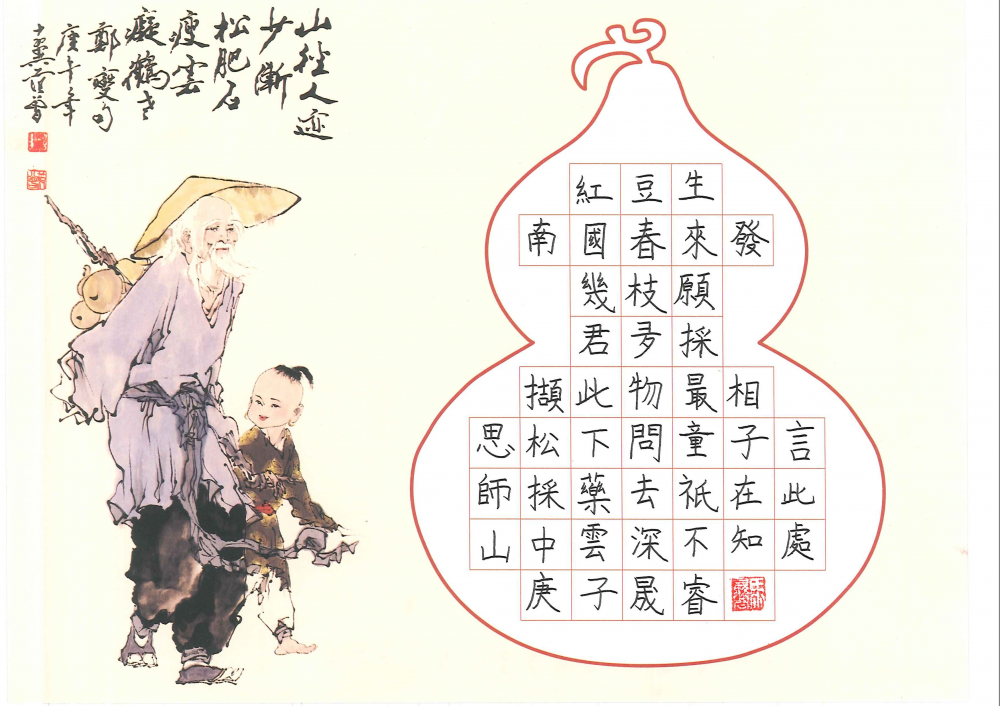 山徑人迹
少漸
松肥石
瘦雲
癡鶴老
鄭燮句
庚午年
十翼范曾
紅豆生
南國春來發
幾枝願
君多採
擷此物最相
思松下問童子言
師採藥去祇在此
山中雲深不知處
庚子晟睿